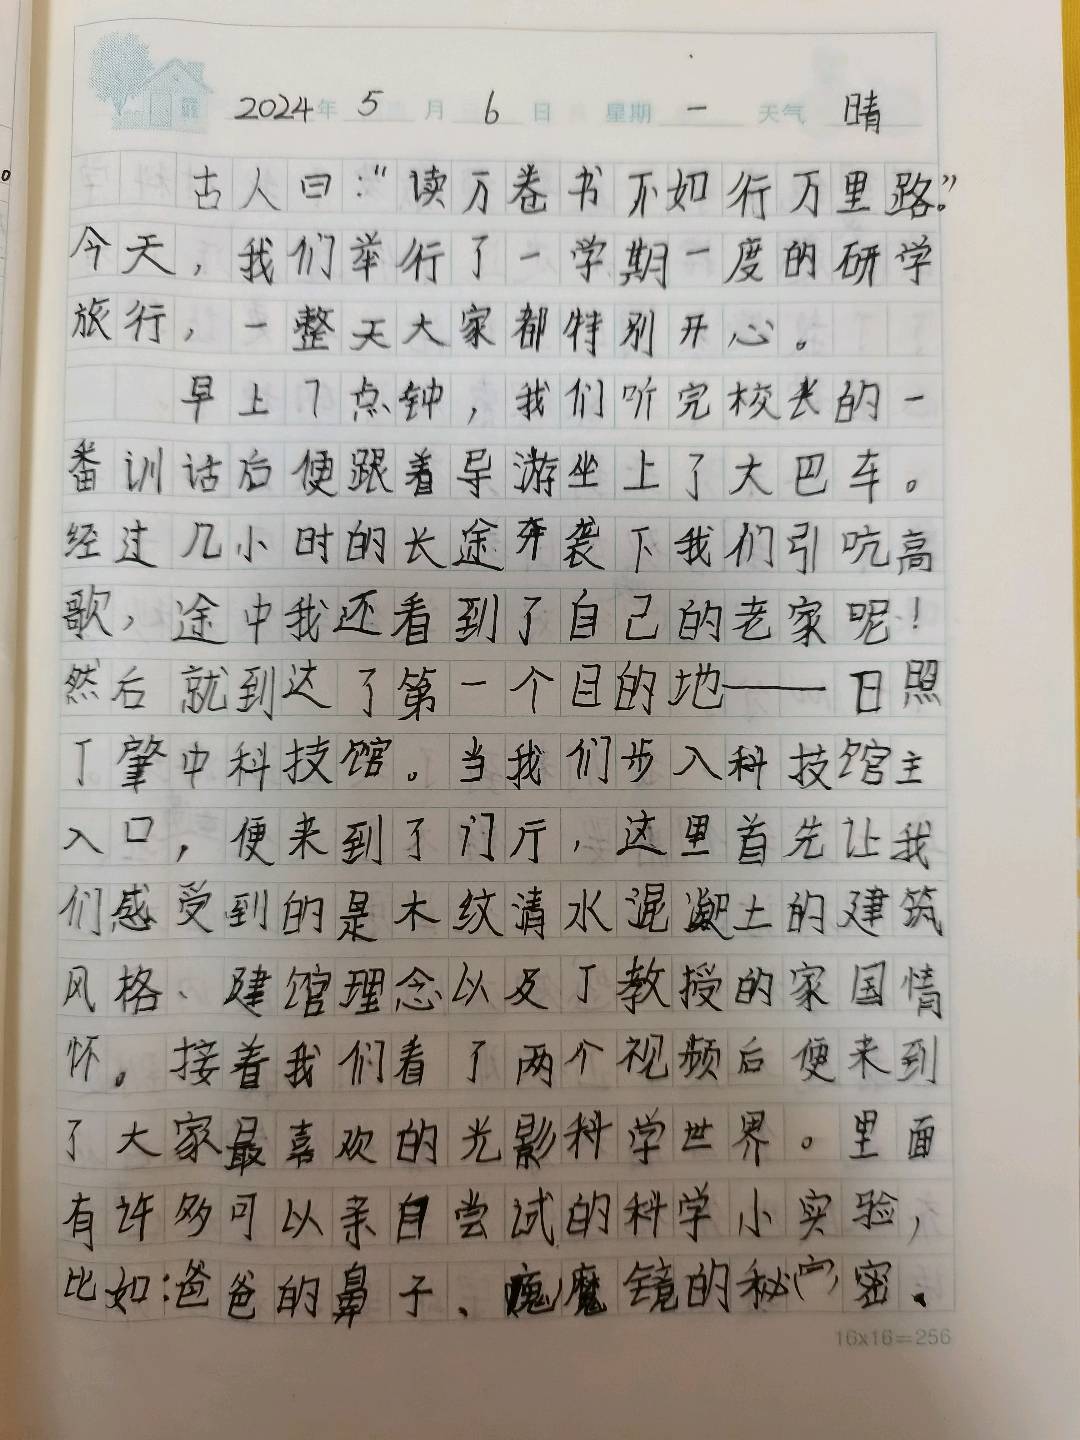 2024年 5 月 6 日 星期 一 天气 晴
古人曰:“读万卷书不如行万里路。”
今天,我们举行了一学期一度的研学
旅行,一整天大家都特别开心。
早上7点钟,我们听完校长的一
番训话后便跟着导游坐上了大巴车。
经过几小时的长途奔袭下我们引吭高
歌,途中我还看到了自己的老家呢!
然后就到达了第一个目的地——日照
丁肇中科技馆。当我们步入科技馆主
入口,便来到了门厅,这里首先让我
们感受到的是木纹清水混凝土的建筑
风格、建馆理念以及丁教授的家国情
怀。接着我们看了两个视频后便来到
了大家最喜欢的光影科学世界。里面
有许多可以亲自尝试的科学小实验,
比如:爸爸的鼻子、魔镜的秘密、
16x16=256